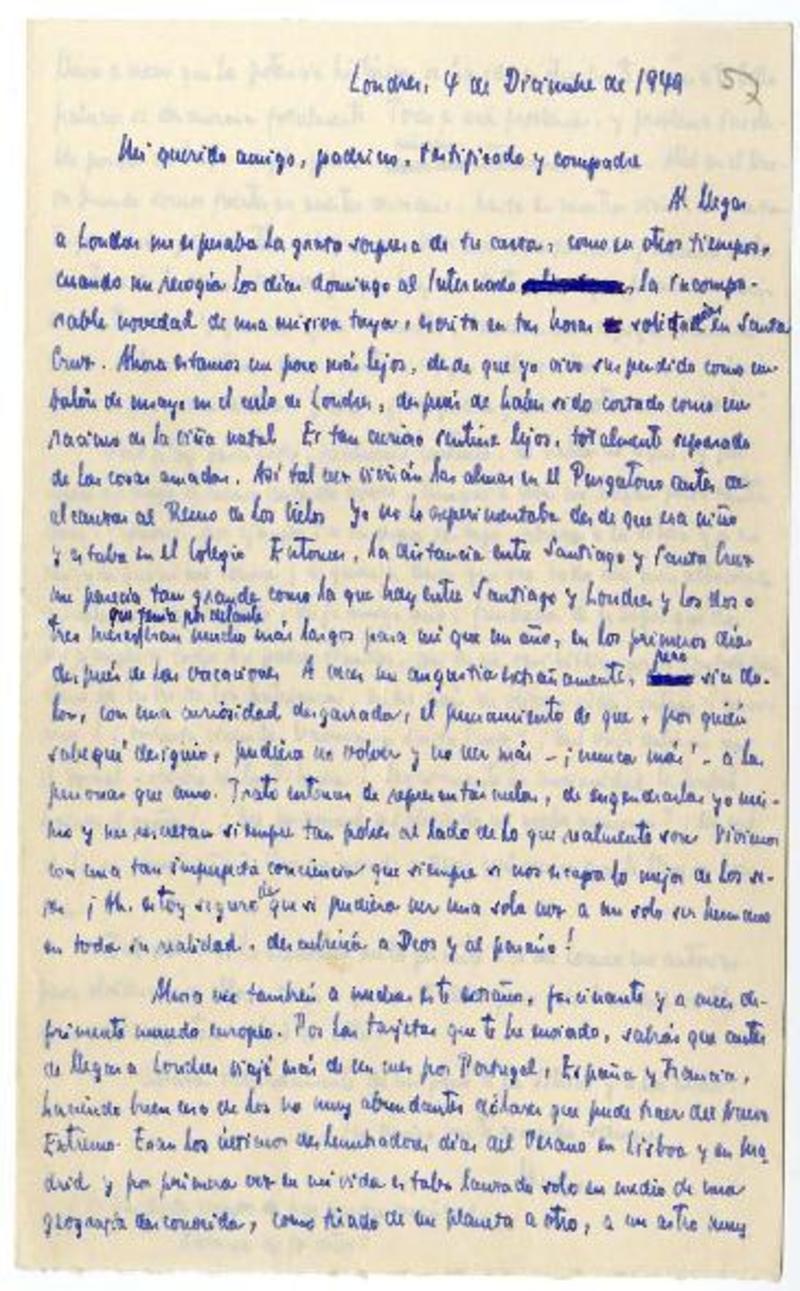 Londres, 4 de Diciembre de 1949 57
Mi querido amigo, padrino, testificado y compadre
Al llegar
a Londres me esperaba la grata sorpresa de tu carta, como en otros tiempos,
cuando me recogía los días domingo al Internado, la incompa-
rable novedad de una misiva tuya, escrita en tus horas solitarias en Santa
Cruz. Ahora estamos un poco más lejos, desde que yo vivo suspendido como un
balón de ensayo en el cielo de Londres, después de haber sido cortado como un
racimo de la viña natal. Es tan curioso sentirse lejos, totalmente separado
de las cosas amadas. Así tal vez vivirán las almas en el Purgatorio antes de
alcanzar al Reino de los Cielos. Yo no lo experimentaba desde que era niño
y estaba en el Colegio. Entonces, la distancia entre Santiago y Santa Cruz
me parecía tan grande como la que hay entre Santiago y Londres y los dos o
tres meses que tenía por delante eran mucho más largos para mí que un año, en los primeros días
después de las vacaciones. A veces me angustia extrañamente, pero sin do-
lor, con una curiosidad desgarrada, el pensamiento de que, por quién
sabe qué designio, pudiera no volver y no ver más - ¡nunca más! - a las
personas que amo. Trato entonces de representármelas, de engendrarlas yo mis-
mo y me resultan siempre tan pobres al lado de lo que realmente son. Vivimos
con una tan imperfecta conciencia que siempre se nos escapa lo mejor de los se-
res. ¡Ah, estoy seguro de que si pudiera ver una sola vez a un solo ser humano
en toda su realidad, descubriría a Dios y al paraíso!
Ahora veo también a medias este extraño, fascinante y a veces de-
primente mundo europeo. Por las tarjetas que te he enviado, sabrás que antes
de llegar a Londres viajé más de un mes por Portugal, España y Francia,
haciendo buen uso de los no muy abundantes dólares que pude traer del Nuevo
Extremo. Eran los últimos deslumbradores días del Verano en Lisboa y en Ma-
drid y por primera vez en mi vida estaba lanzado solo en medio de una
geografía desconocida, como tirado de un planeta a otro, a un astro muy